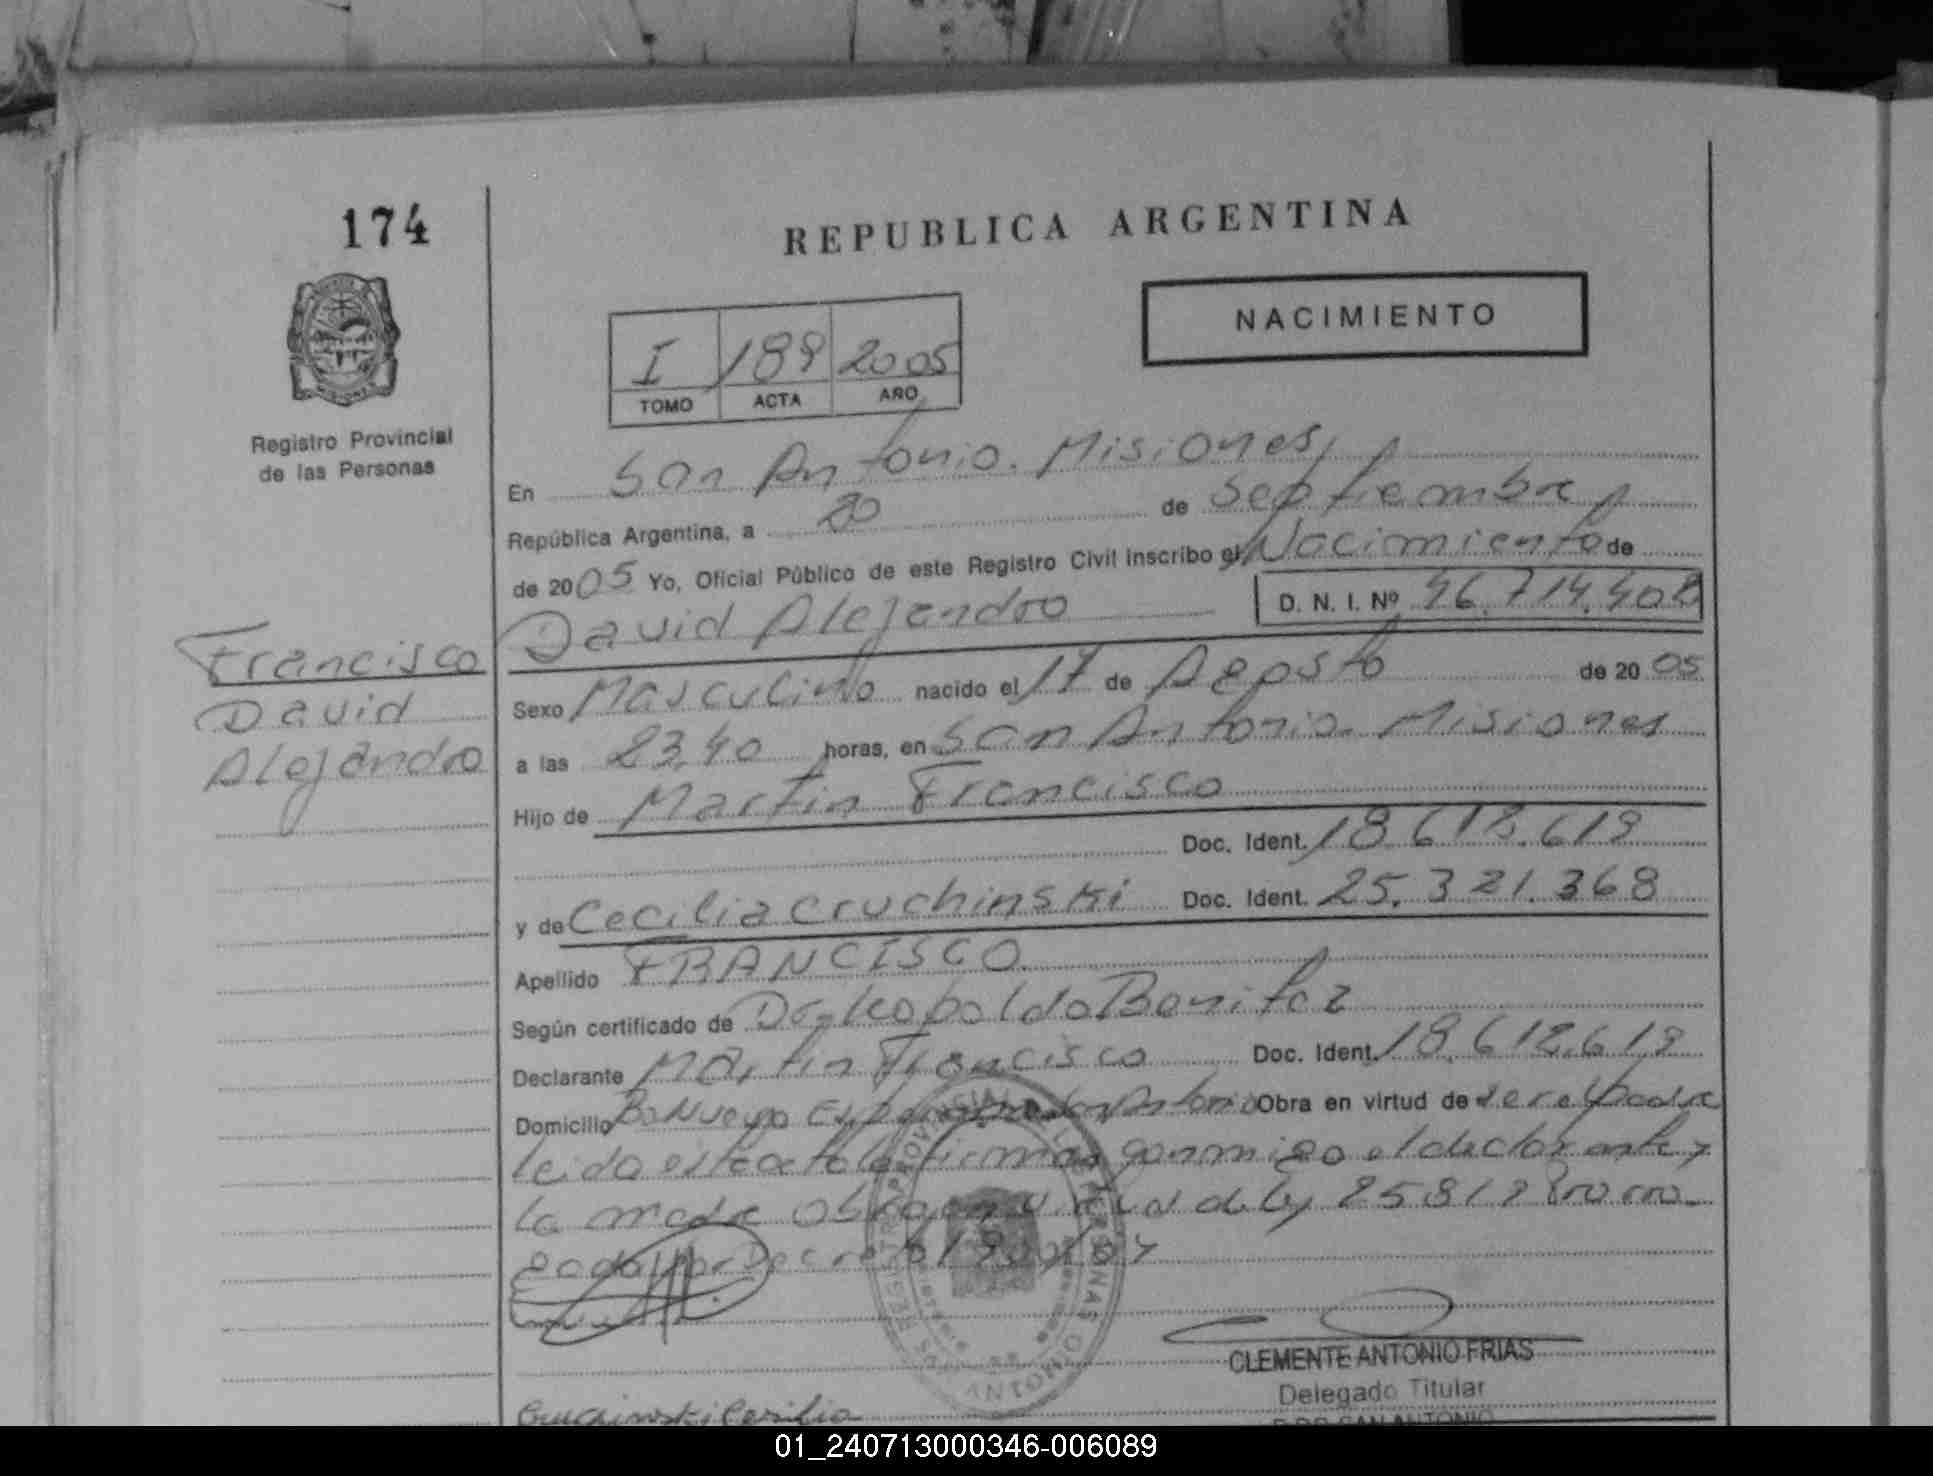 174
REPUBLICA ARGENTINA
NACIMIENTO
I 189 2005
TOMO ACTA AÑO
Registro Provincial
de las Personas
En San Antonio. Misiones,
República Argentina, a 20 de Septiembre
de 2005 Yo, Oficial Público de este Registro Civil inscribo el Nacimiento de
David Alejandro D. N. I. Nº 46.714.408
Francisco
David
Alejandro
Sexo Masculino nacido el 17 de Agosto de 20 05
a las 23,40 horas, en San Antonio. Misiones
Hijo de Martin Francisco
Doc. Ident. 18.618.619
y de Cecilia Cruchinski Doc. Ident. 25.321.368
Apellido FRANCISCO
Según certificado de Dr. Leopoldo Benitez
Declarante Martin Francisco Doc. Ident. 18.618.619
Domicilio Bo Nuevo San Antonio Obra en virtud de ser el Padre
leido el acta la firman conmigo el declarante y
la madre Obra en virtud de ley 25.819 Prorro
gada por Decreto
CLEMENTE ANTONIO FRIAS
Delegado Titular
Cruchinski Cecilia
SAN ANTONIO
01_240713000346-006089